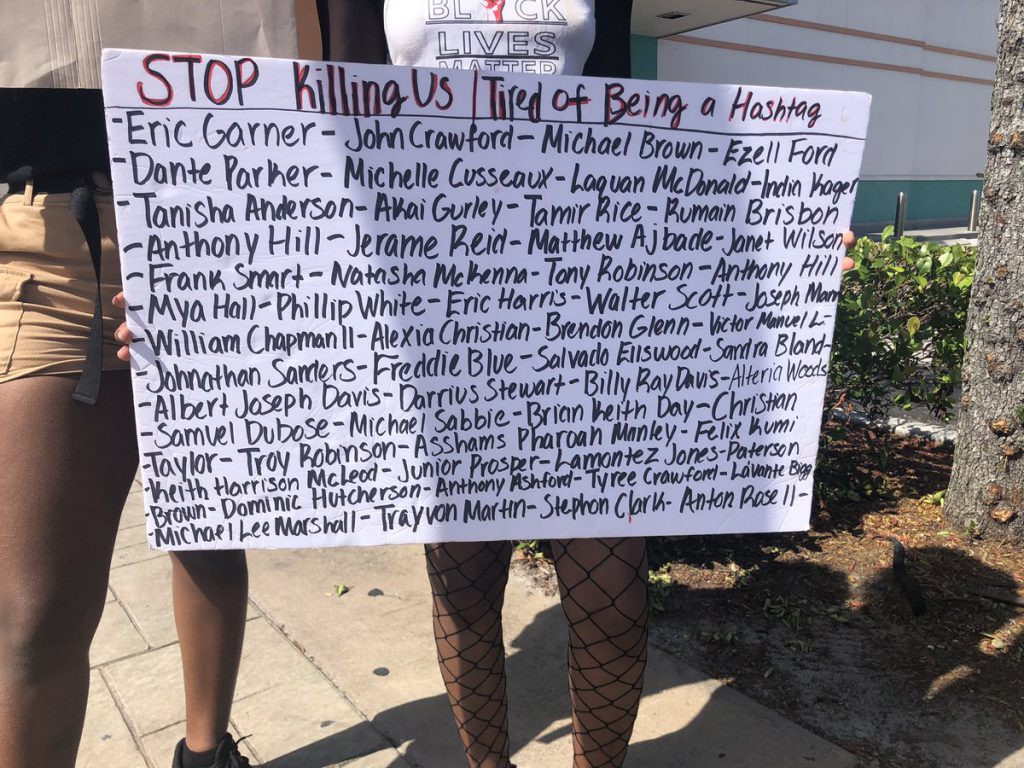 BLACK
LIVES
MATTER
STOP Killing Us | Tired of Being a Hashtag
-Eric Garner- John Crawford- Michael Brown- Ezell Ford
-Dante Parker- Michelle Cusseaux- Laquan McDonald- India Kager
-Tanisha Anderson- Akai Gurley- Tamir Rice- Rumain Brisbon
-Anthony Hill- Jerame Reid- Matthew Ajbade- Janet Wilson
-Frank Smart- Natasha McKenna- Tony Robinson- Anthony Hill
-Mya Hall- Phillip White- Eric Harris- Walter Scott- Joseph Mann
-William Chapman II- Alexia Christian- Brendon Glenn- Victor Manuel L-
-Johnathan Sanders- Freddie Blue- Salvado Ellswood- Sandra Bland-
-Albert Joseph Davis- Darrius Stewart- Billy Ray Davis- Alteria Woods
-Samuel Dubose- Michael Sabbie- Brian Keith Day- Christian
-Taylor- Troy Robinson- Asshams Pharoah Manley- Felix Kumi
-Keith Harrison McLeod- Junior Prosper- Lamontez Jones- Paterson
-Brown- Dominic Hutcherson- Anthony Ashford- Tyree Crawford- Lavante Bigg
-Michael Lee Marshall- Trayvon Martin- Stephon Clark- Anton Rose II-